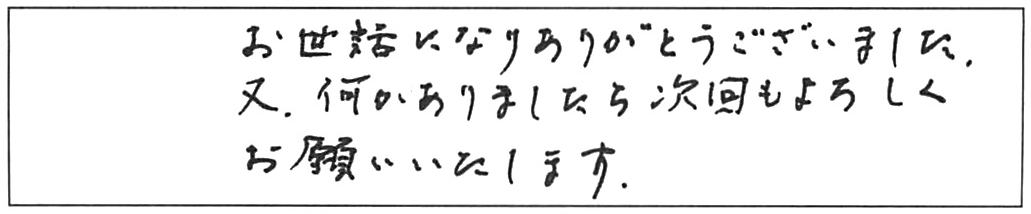 お世話になりありがとうございました.
又.何かありましたら次回もよろしく
お願いいたします.